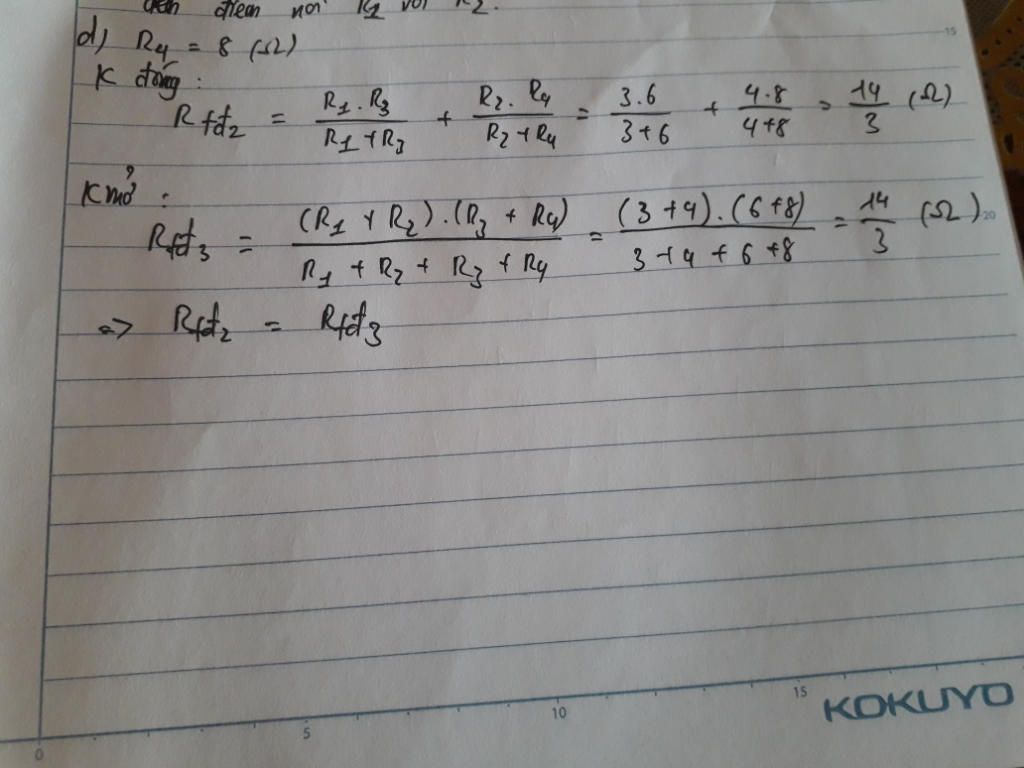 đến điểm nối R1 với R2.
d) R4 = 8 (Ω)
K đóng :
Rtđ2 = R1 . R3 / R1 + R3 + R2 . R4 / R2 + R4 = 3.6 / 3+6 + 4.8 / 4+8 = 14 / 3 (Ω)
K mở :
Rtđ3 = (R1 + R2) . (R3 + R4) / R1 + R2 + R3 + R4 = (3+4) . (6+8) / 3+4+6+8 = 14 / 3 (Ω)
=> Rtđ2 = Rtđ3
15
20
0 5 10 15
KOKUYO